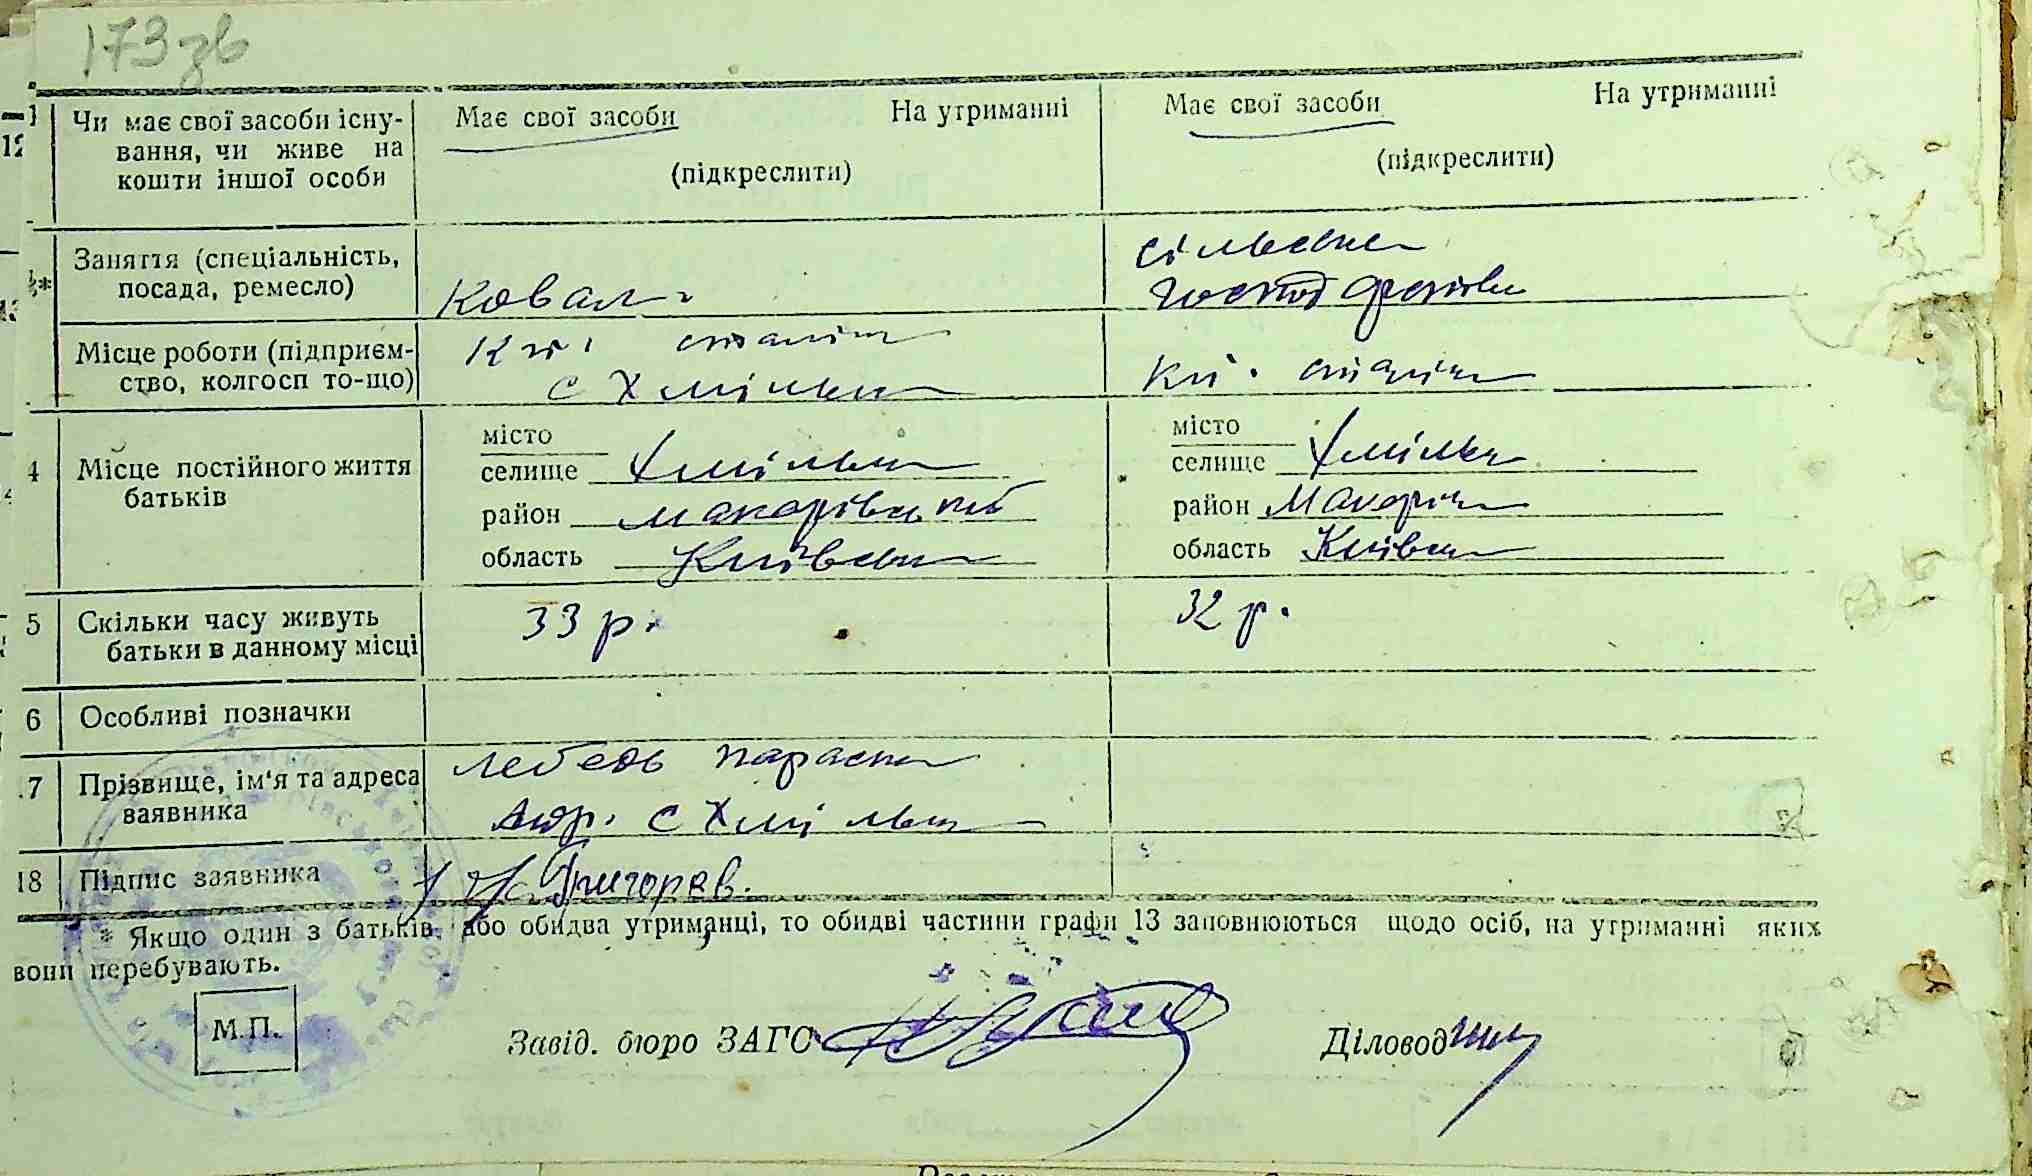 173 зв
Чи має свої засоби існу-
вання, чи живе на
кошти іншої особи
Має свої засоби На утриманні
(підкреслити)
Має свої засоби На утриманні
(підкреслити)
Заняття (спеціальність,
посада, ремесло)
Коваль
сільське
Місце роботи (підприєм-
ство, колгосп то-що)
с Хмільн
4 Місце постійного життя
батьків
місто
селище Хмільн
район Макарівський
область Київськ
місто
селище Хмільн
район Макарів
область Київськ
5 Скільки часу живуть
батьки в данному місці
33 р.
32 р.
6 Особливі позначки
7 Прізвище, ім'я та адреса
заявника
Лебедь Параска
Адр. с Хмільн
18 Підпис заявника
Григорєв.
* Якщо один з батьків, або обидва утриманці, то обидві частини графи 13 заповнюються щодо осіб, на утриманні яких
вони перебувають.
М.П.
Завід. бюро ЗАГС
Діловод